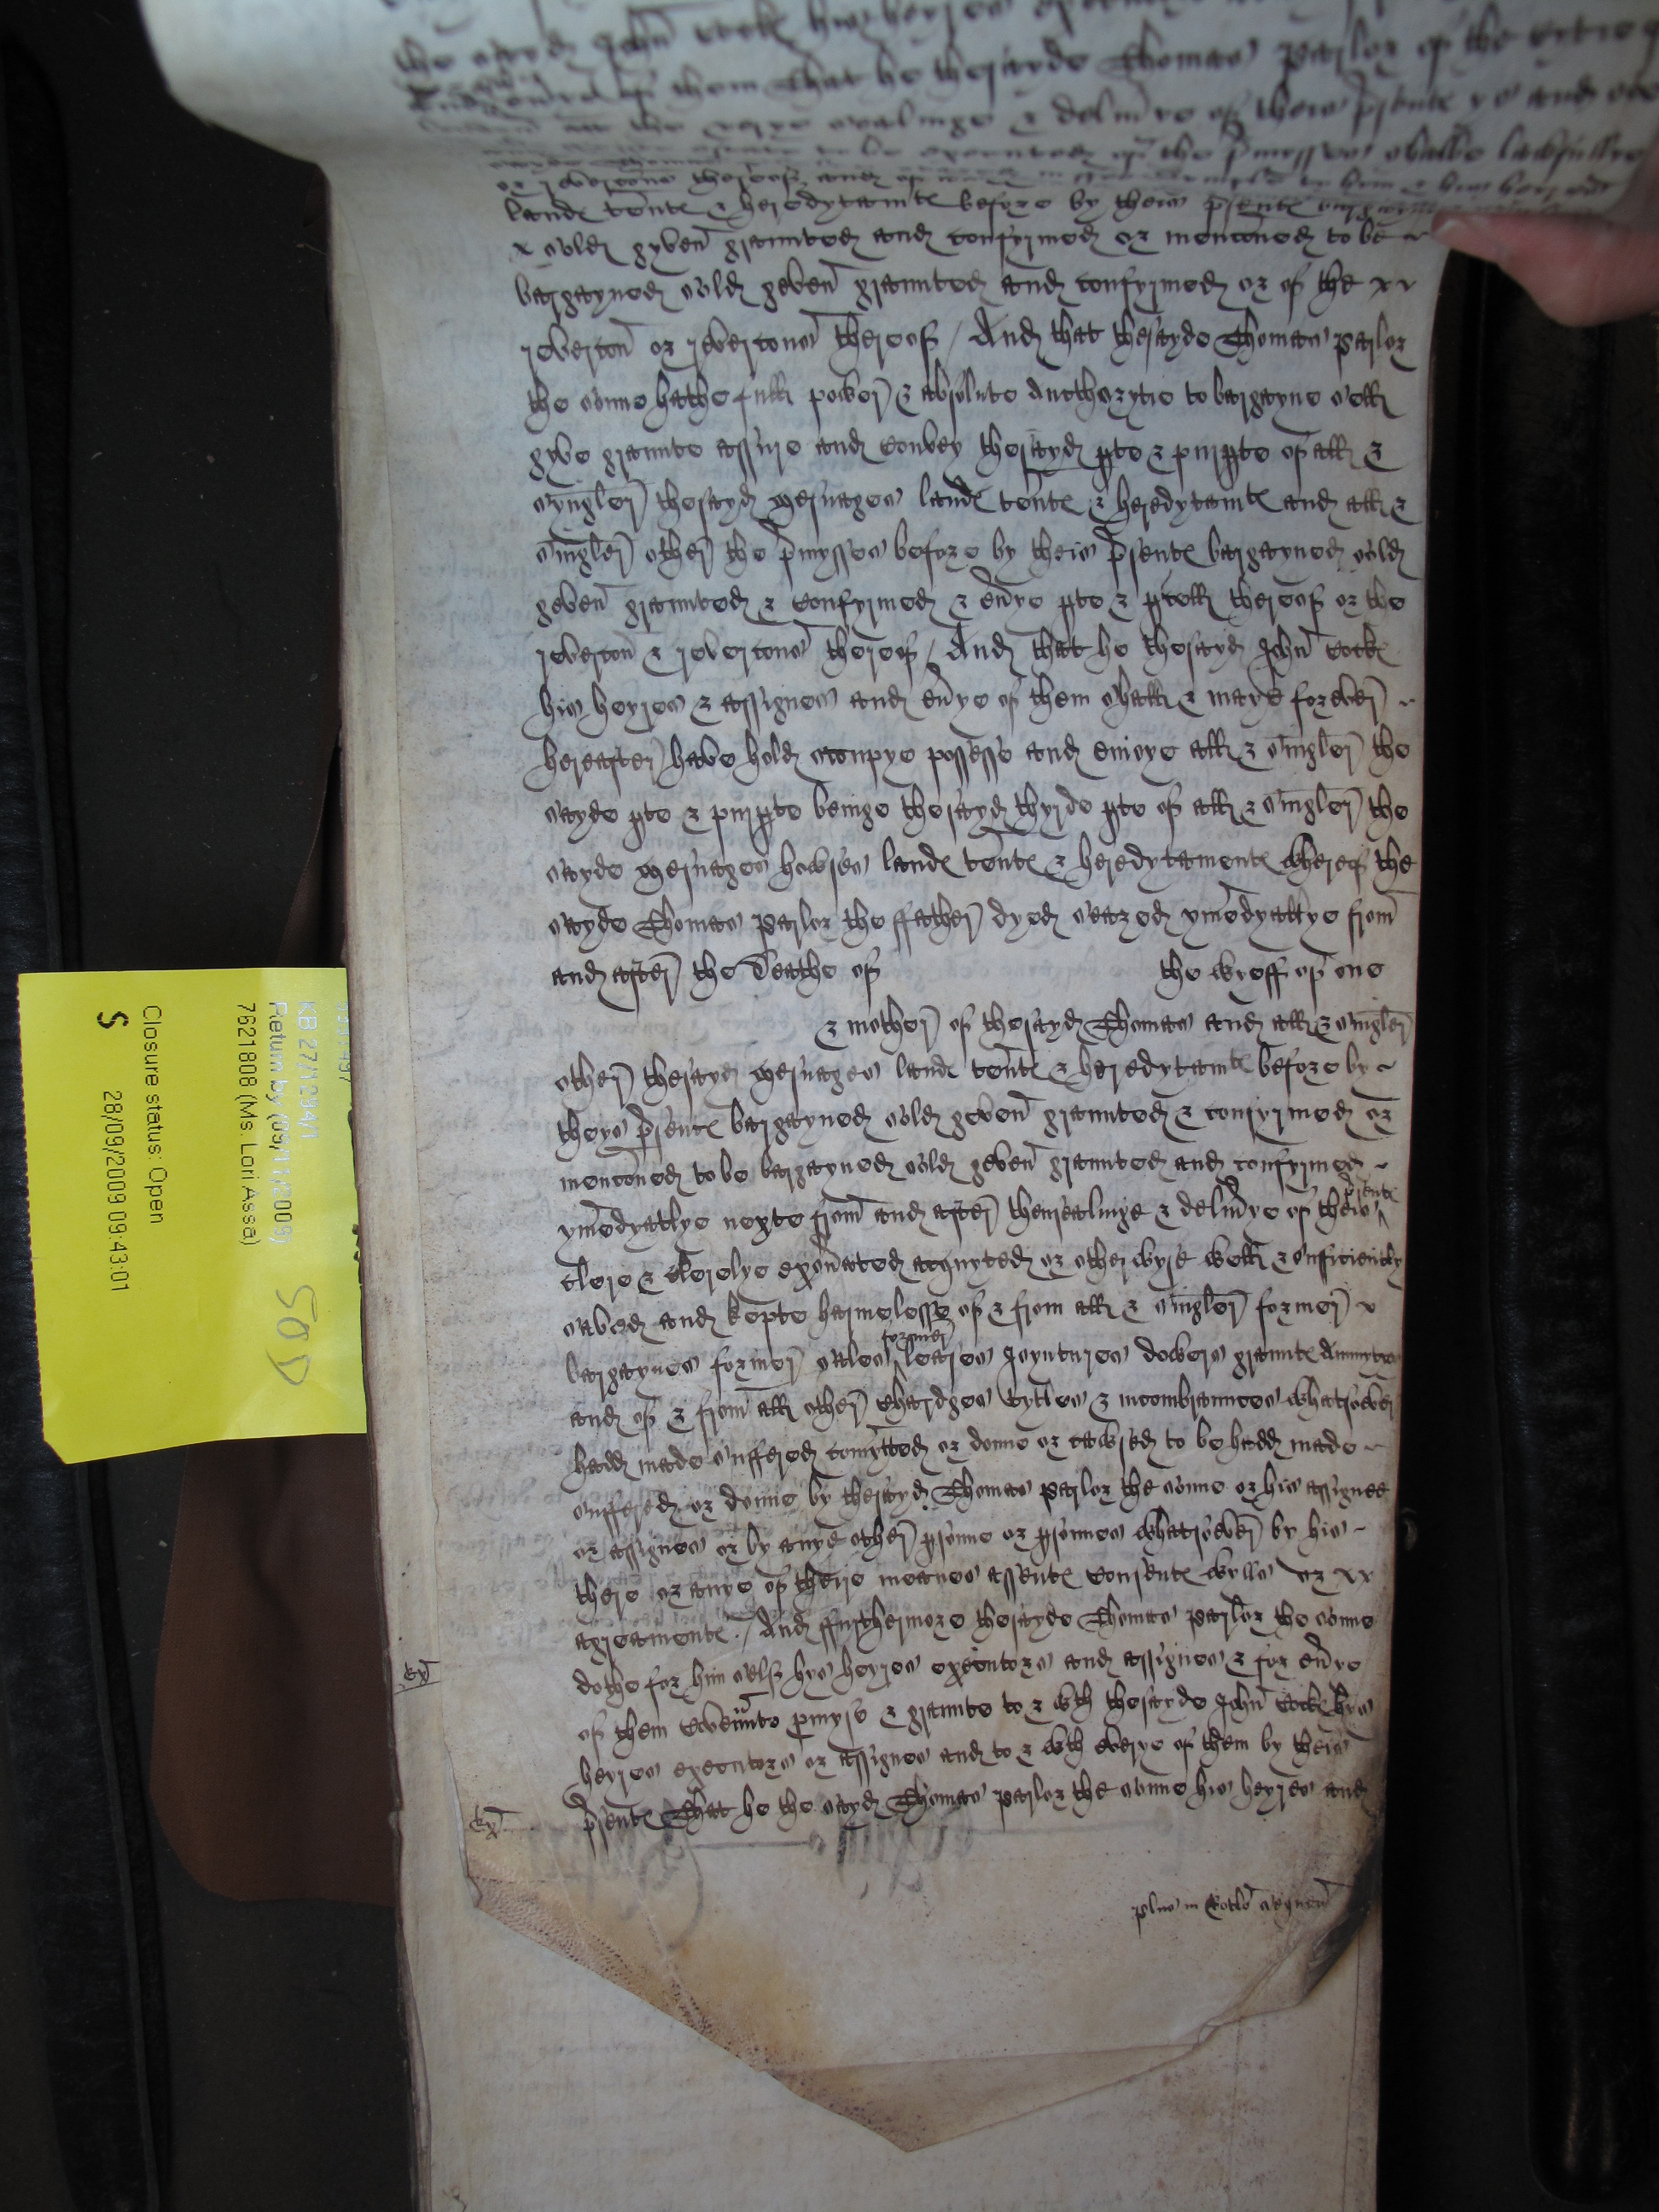 the sayd John Cocke his heyres
of them that he the sayde Thomas Parlor
the ensealinge & delivᵉye of theis p̄sentꝭ
landꝭ tentꝭ & heredytamtꝭ before by theis p̄sentꝭ
sold gyven graunted and confyrmed or mencōned to be
bargayned sold geven graunted and confyrmed or of the
rev̄cōn or rev̄cōns thereof / And that thesayde Thomas Parlor
the sonne hathe full power & absolute Aucthorytie to bargayne sell
gyve graunte assure and convey thesayd p̱te & purp̱te of all &
synguler thesayd mesuages landꝭ tentꝭ & heredytamtꝭ and all &
singler other the p̄mysses before by theis p̄sentꝭ bargayned sold
geven graunted & confyrmed & ev̄ye p̱te & p̱cell thereof or the
rev̄cōn & revercons thereof / And that he thesayd John Cocke
his heyres & assignes and ev̄ye of them shall & maye forever
hereafter have hold occupye possesse and enioye all & singler the
sayde p̱te & purp̱te beinge thesayd thyrde p̱te of all & singler the
sayde mesuages howses landꝭ tentꝭ & heredytamentꝭ whereof the
sayde Thomas Parlor the ffather dyed seazed ymedyatlye from
and after the deathe of the wyeff of one
& mother of thesayd Thomas and all & singler
other thesayd mesuages landꝭ tentꝭ & heredytamtꝭ before by
theys p̄sentꝭ bargayned sold geven graunted & confyrmed or
mencōned to be bargayned sold geven graunted and confyrmed
ymedyatlye nexte from and after thensealinge & delivᵉye of theis p̄sentꝭ
clere & clerelye exon̄ated acquyted or otherwyse well & sufficiently
saved and kepte harmelesse of & from all & singler former
bargaynes former sales former leases Joyntures dowers grauntꝭ Annuytes
and of & from all other chardges tytles & incombrances whatsoever
hadd made suffered comytted or donne or cawsed to be hadd made
suffered or donne by thesayd Thomas Parlor the sonne or his assignee
or assignes or by anye other p̱sonne or p̱sonnes whatsoever by his
there or anye of theire meanes assentꝭ consentꝭ wylls or
agreamentꝭ / And ffurthermore thesayde Thomas Parlor the sonne
dothe for him self hys heyres executors and assignes & for ev̄ye
of them Covenᵃunte p̱myse & graunte to & wth thesayde John Cocke hys
heyres executors or assignes and to & wth everye of them by theis
p̄sentꝭ That he the sayd Thomas Parlor the sonne his heyres and
plus in Rotlo sequen̄
KB 27/1294/1
Return by (09/11/2009)
7621808 (Ms. Lori Assa)
Closure status: Open
S
28/09/2009 09:43:01
50D